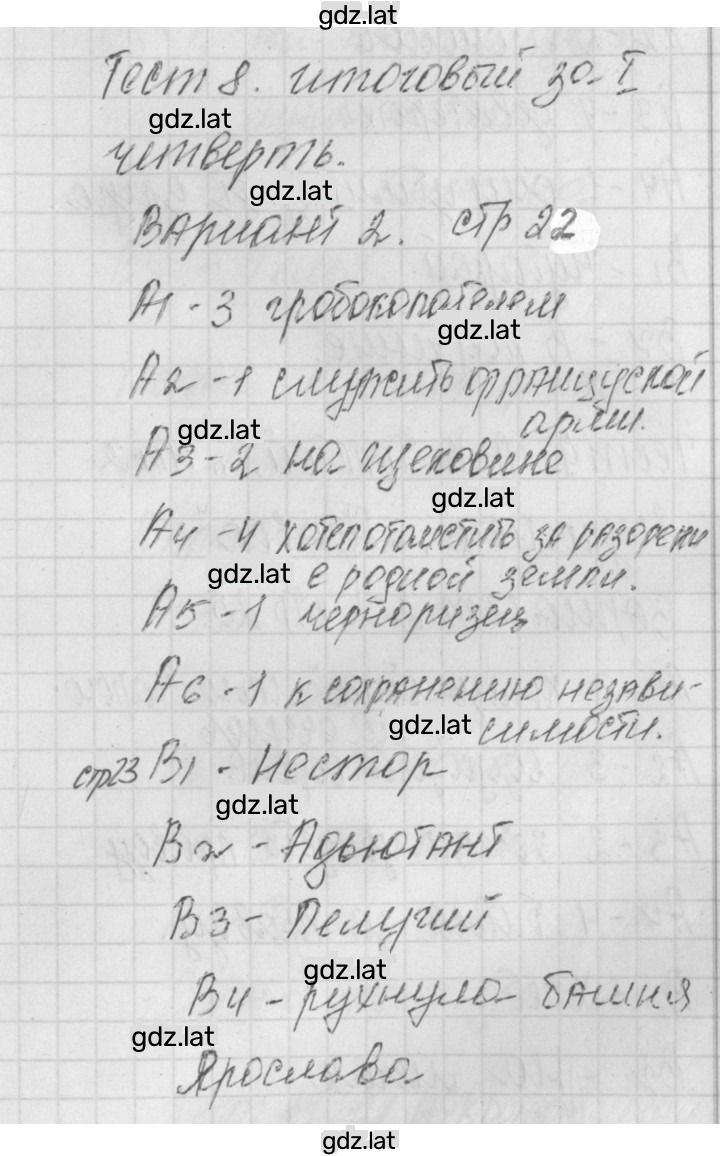 gdz.lat
Тест 8. итоговый за I
gdz.lat
четверть.
gdz.lat
Вариант 2. стр 22
А1 - 3 гробокопателем
gdz.lat
А2 - 1 служить французской
армии.
gdz.lat
А3 - 2 на щековине
gdz.lat
А4 - 4 хотел отомстить за разорени
gdz.lat е родной земли.
А5 - 1 черноризец
А6 - 1 к сохранению незави-
gdz.lat симости.
стр23 В1 - Нестор
gdz.lat
В2 - Адьютант
В3 -
gdz.lat
В4 - рухнула башня
gdz.lat
Ярослава
gdz.lat